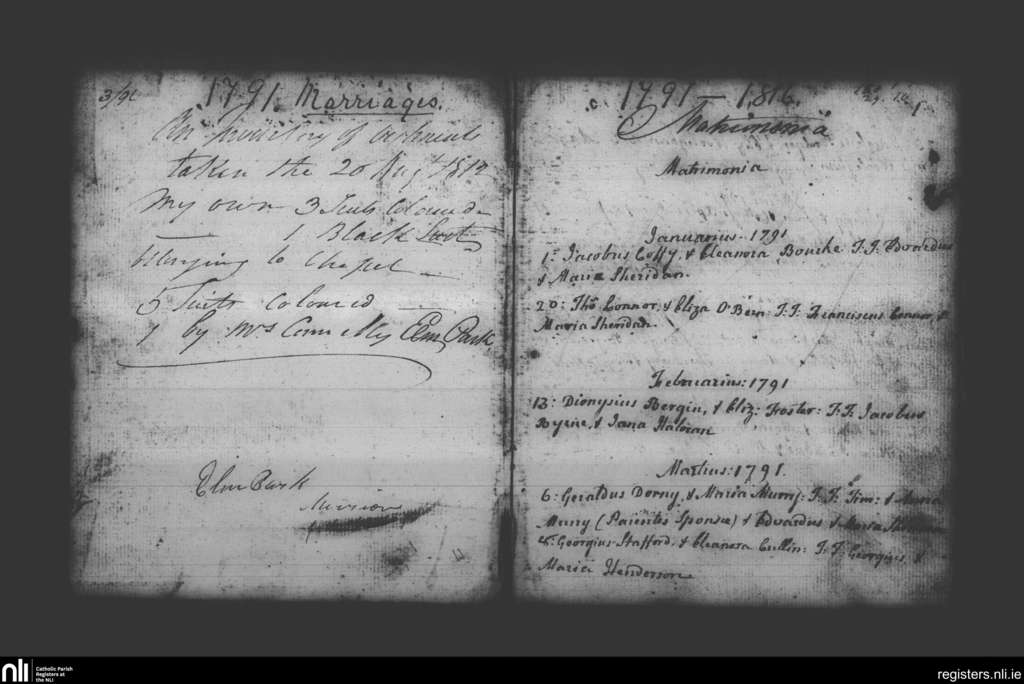 3/91
1791. Marriages.
An inventory of vestments
taken the 20 Augt 1812
My own 3 Suits Coloured
— 1 Black Suit
belonging to Chapel —
5 Suits Coloured —
1 by Mrs Connelly Elm Park
Elm Park
Merrion
c. 1791 — 1816.
1
Matrimonia
Matrimonia
Januarius - 1791
1: Jacobus Coffy, & Eleanora Bourke T.T.
& Maria Sheridan.
20: Thos Connor, & Eliza O'Bern T.T. Franciscus Connor, &
Maria Sheridan
Februarius: 1791
13: Dionysius Bergin, & Eliz: Foster: T.T. Jacobus
Byrne, & Jana Haloran
Martius: 1791.
6: Geraldus Dorny, & Maria Murry: T.T. Tim: &
Murry (Parentes Sponsæ) & Edvardus & Maria
Georgius Stafford: & Eleanora Cullin: T.T. Georgius &
Maria Henderson
nli
Catholic Parish
Registers at
the NLI
registers.nli.ie